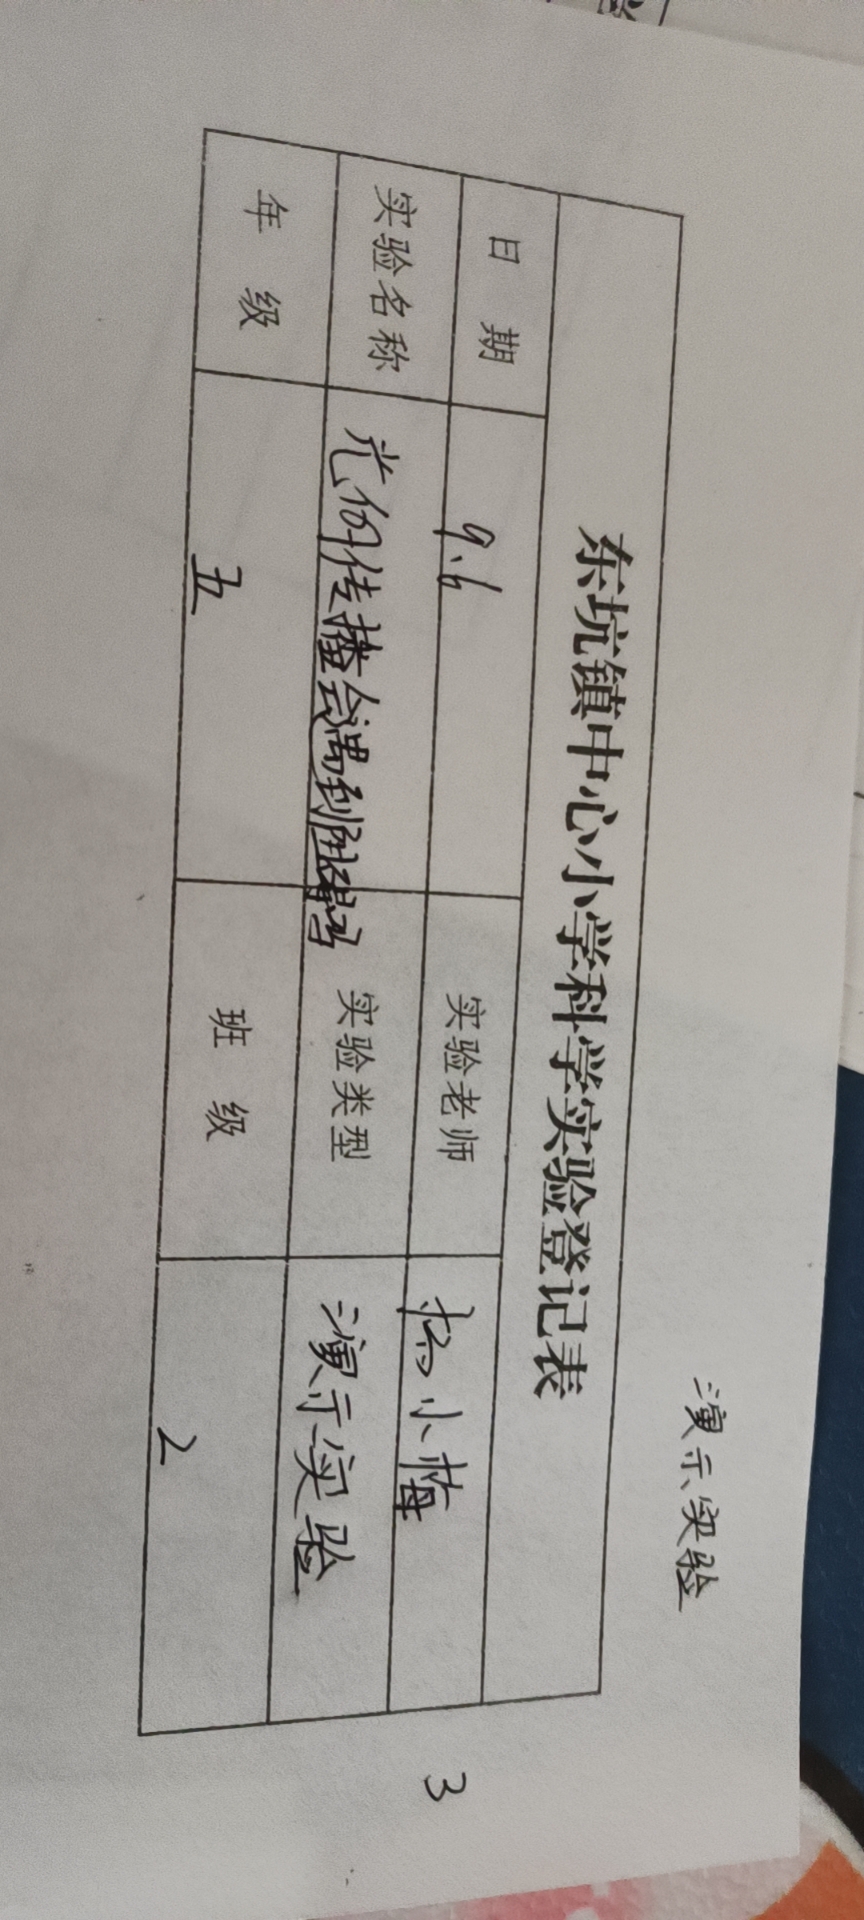 演示实验
东坑镇中心小学科学实验登记表
日期 9.6 实验老师 杨小梅
实验名称 光的传播会遇到阻碍吗 实验类型 演示实验
年级 五 班级 2
3